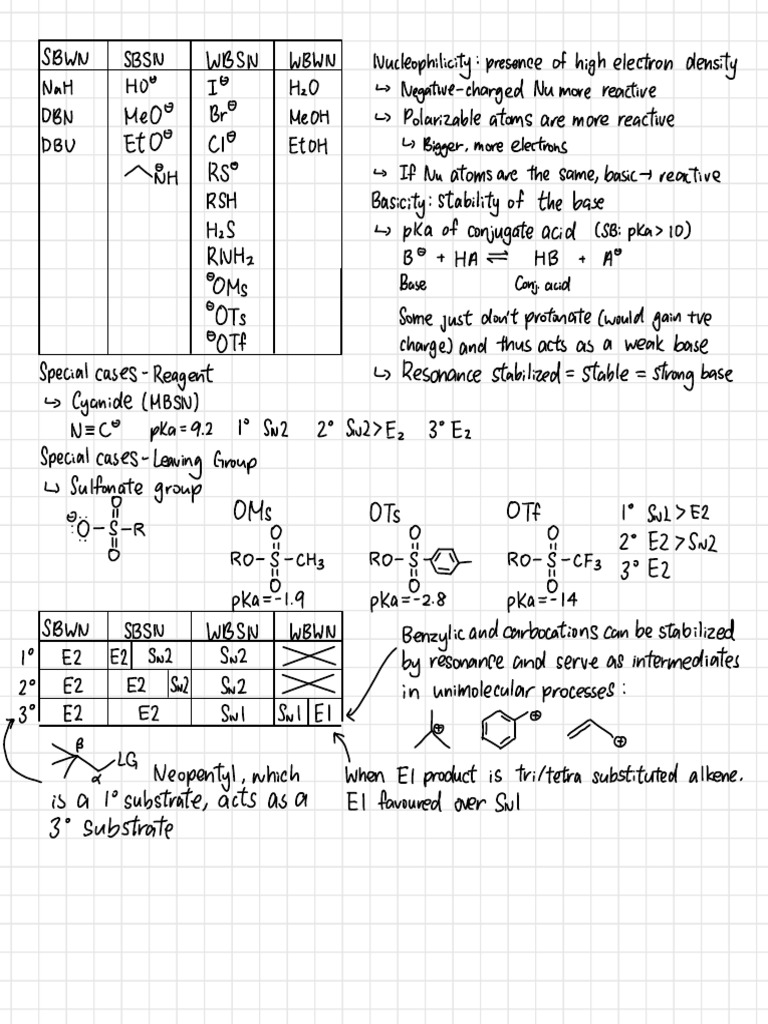 SBWN SBSN WBSN WBWN
NaH HO⊖ I⊖ H₂O
DBN MeO⊖ Br⊖ MeOH
DBU EtO⊖ Cl⊖ EtOH
⊖NH RS⊖
RSH
H₂S
RNH₂
⊖OMs
⊖OTs
⊖OTf
Nucleophilicity: presence of high electron density
↳ Negative-charged Nu more reactive
↳ Polarizable atoms are more reactive
↳ Bigger, more electrons
↳ If Nu atoms are the same, basic → reactive
Basicity: stability of the base
↳ pKa of conjugate acid (SB: pKa > 10)
B⊖ + HA ⇌ HB + A⊖
Base Conj. acid
Some just don't protonate (would gain +ve
charge) and thus acts as a weak base
↳ Resonance stabilized = stable = strong base
Special cases - Reagent
↳ Cyanide (MBSN)
N≡C⊖ pKa = 9.2 1° SN2 2° SN2 > E2 3° E2
Special cases - Leaving Group
↳ Sulfonate group
⊖:Ö-S-R
O
O
OMs
O
RO-S-CH₃
O
pKa = -1.9
OTs
O
RO-S
O
pKa = -2.8
OTf
O
RO-S-CF₃
O
pKa = -14
1° SN2 > E2
2° E2 > SN2
3° E2
SBWN SBSN WBSN WBWN
1° E2 E2 SN2 SN2
2° E2 E2 SN2 SN2
3° E2 E2 SN1 SN1 E1
Benzylic and carbocations can be stabilized
by resonance and serve as intermediates
in unimolecular processes:
⊕ ⊕ ⊕
β
α
LG
Neopentyl, which
is a 1° substrate, acts as a
3° substrate
When E1 product is tri/tetra substituted alkene.
E1 favoured over SN1